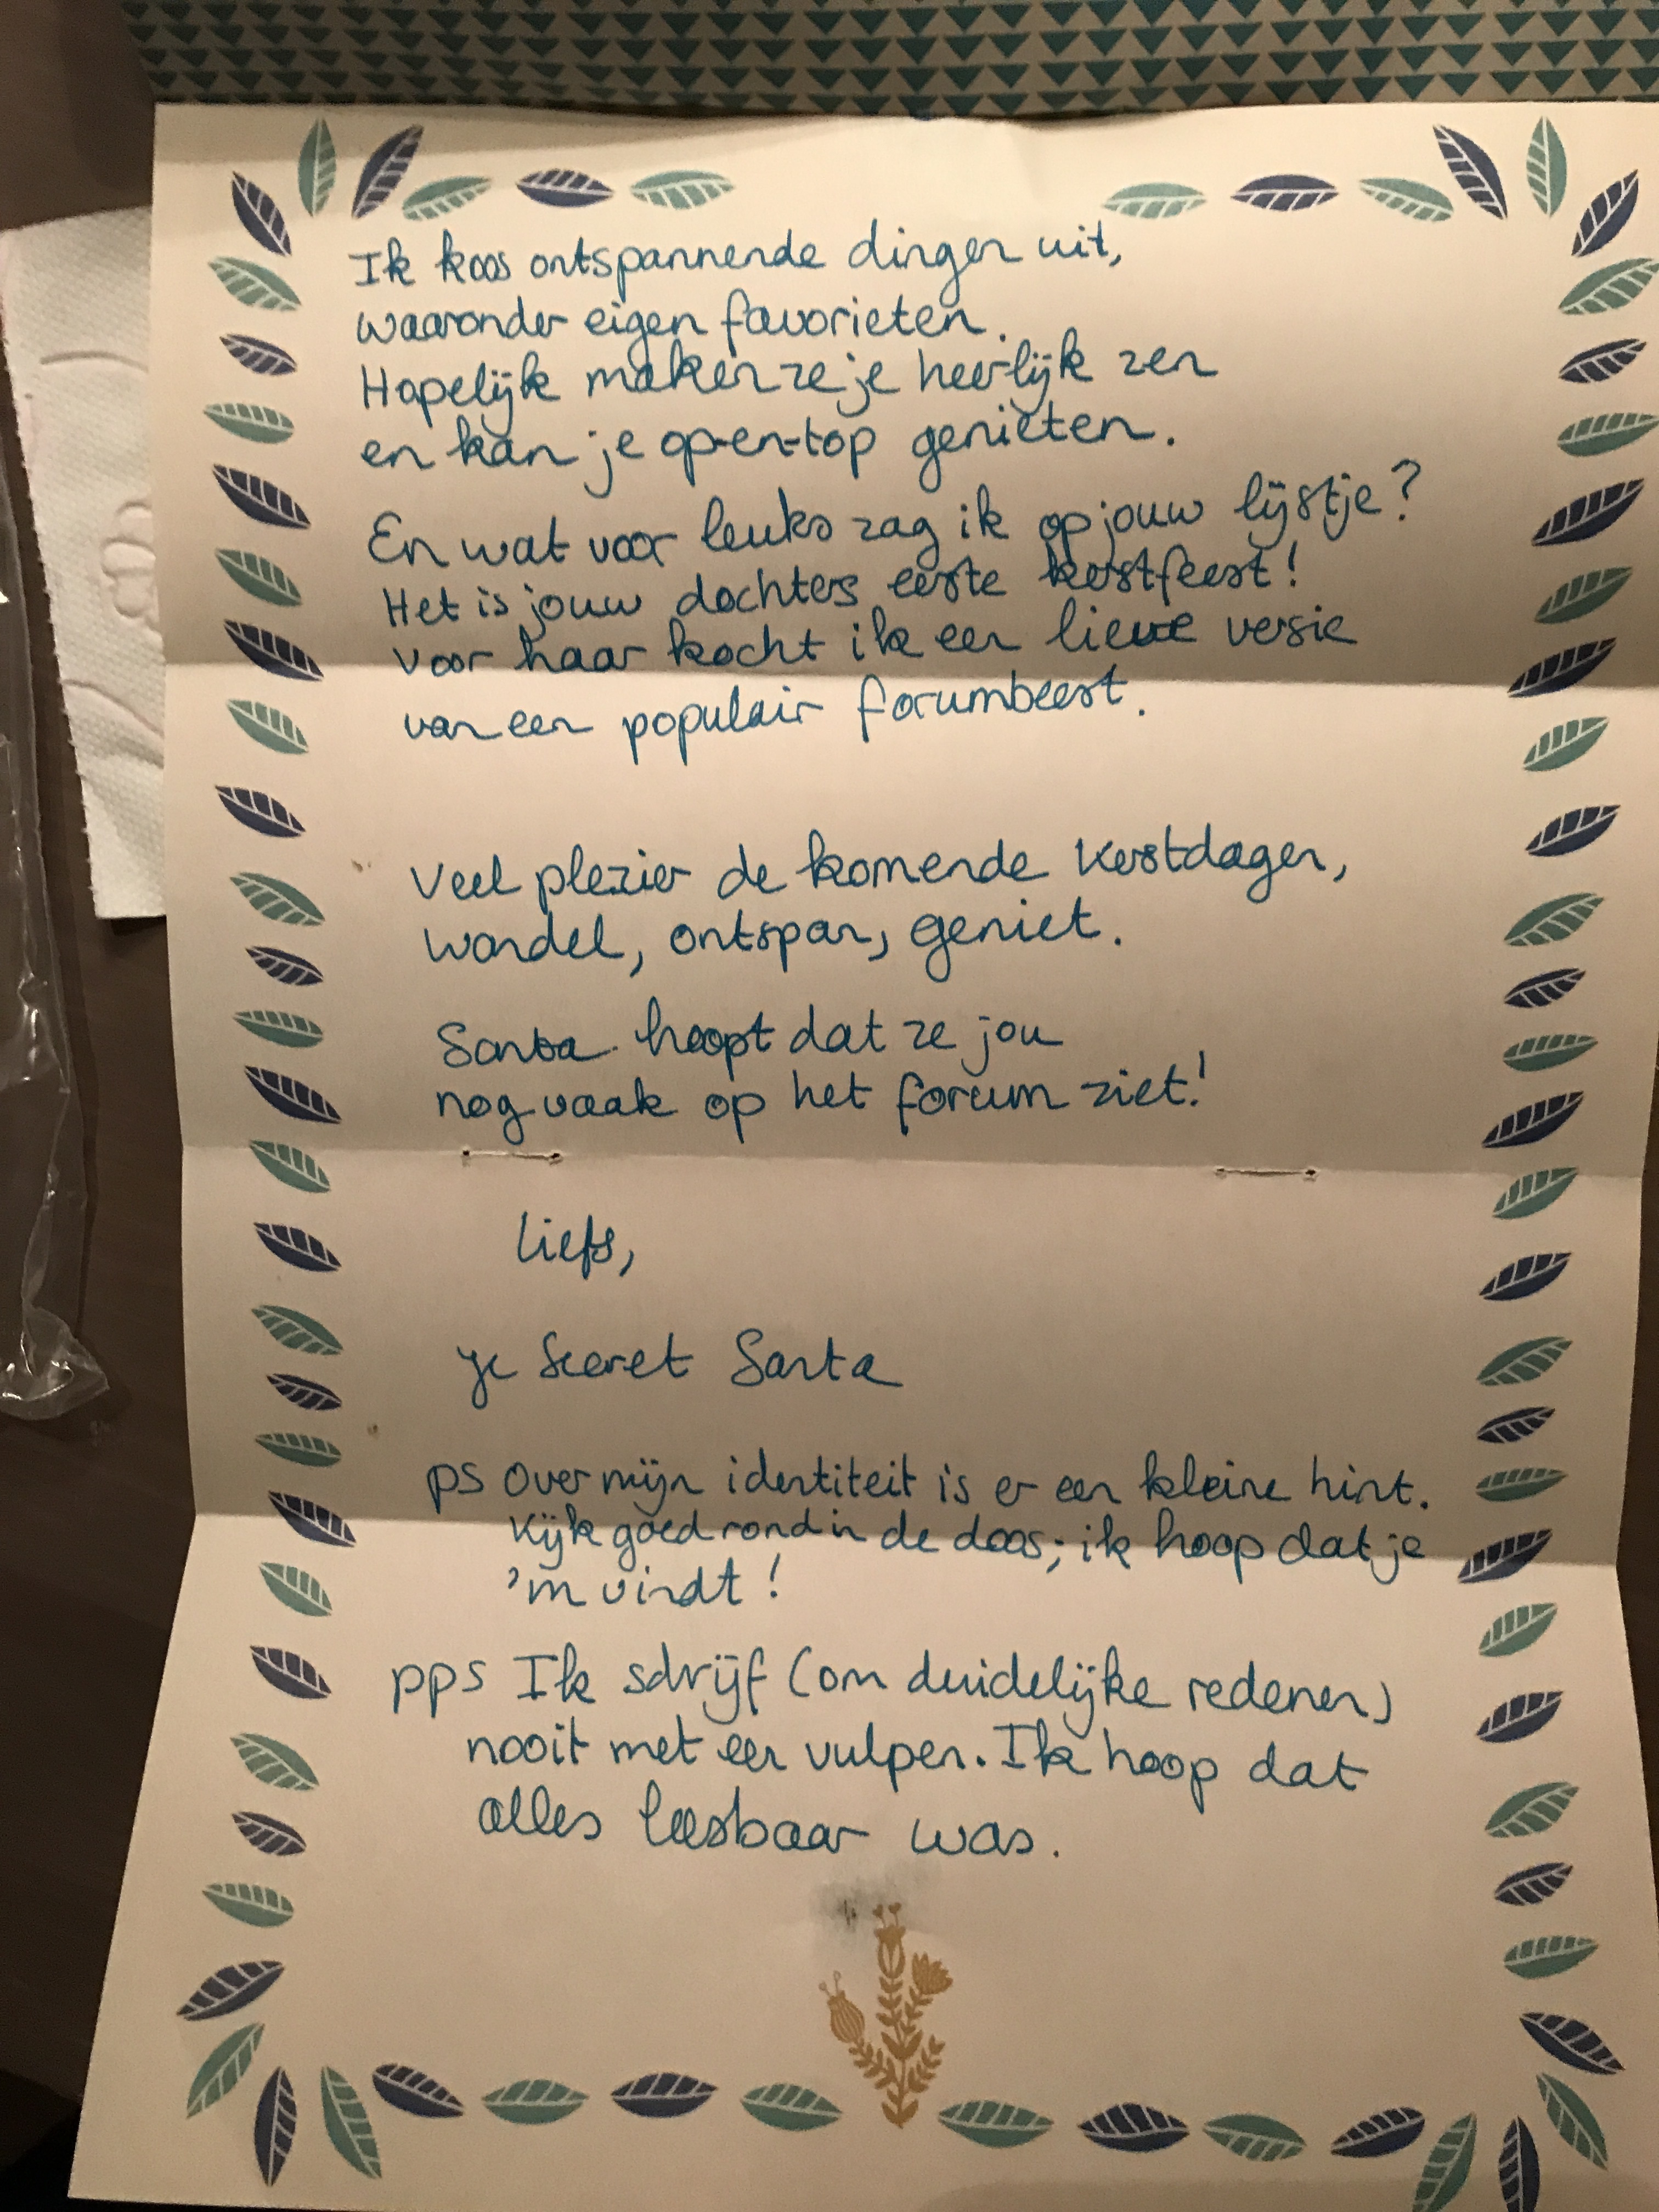 Ik koos ontspannende dingen uit,
waaronder eigen favorieten.
Hopelijk maken ze je heerlijk zen
en kan je op-en-top genieten.
En wat voor leuks zag ik op jouw lijstje?
Het is jouw dochters eerste kerstfeest!
Voor haar kocht ik een lieve versie
van een populair forumbeest.
Veel plezier de komende kerstdagen,
wandel, ontspan, geniet.
Santa hoopt dat ze jou
nog vaak op het forum ziet!
Liefs,
je Secret Santa
ps Over mijn identiteit is er een kleine hint.
Kijk goed rond in de doos; ik hoop dat je
'm vindt!
pps Ik schrijf (om duidelijke redenen)
nooit met een vulpen. Ik hoop dat
alles leesbaar was.